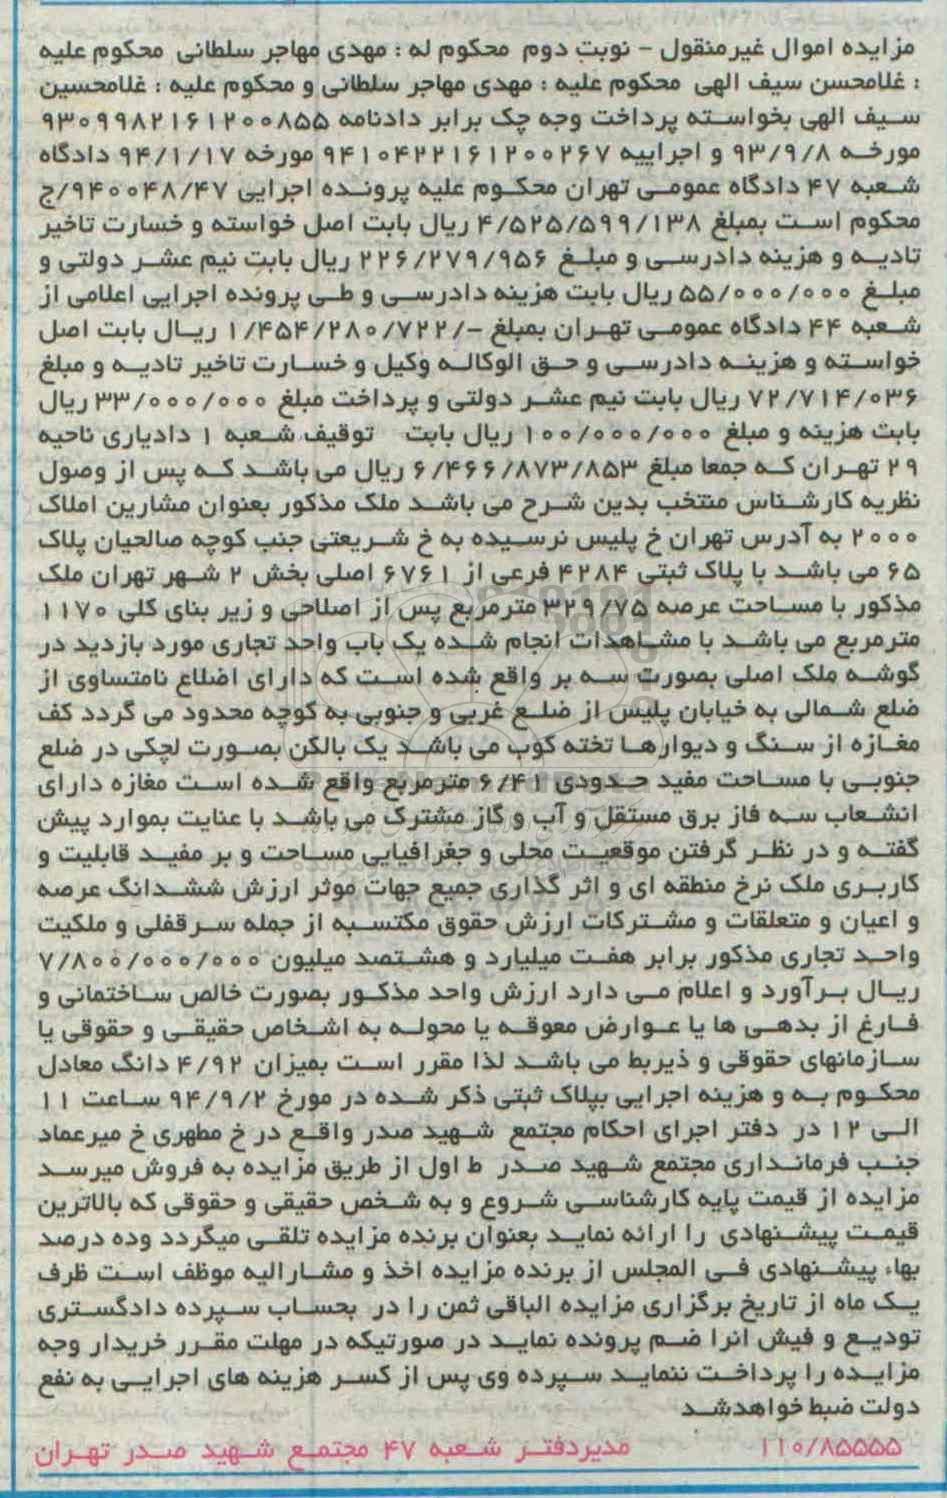 مزایده اموال غیرمنقول – نوبت دوم محکوم له : مهدی مهاجر سلطانی محکوم علیه
: غلامحسن سیف الهی محکوم علیه : مهدی مهاجر سلطانی و محکوم علیه : غلامحسین
سیف الهی بخواسته پرداخت وجه چک برابر دادنامه ۹۳۰۹۹۸۲۱۶۱۲۰۰۸۵۵
مورخه ۹۳/۹/۸ و اجراییه ۹۴۱۰۴۲۲۱۶۱۲۰۰۲۶۷ مورخه ۹۴/۱/۱۷ دادگاه
شعبه ۴۷ دادگاه عمومی تهران محکوم علیه پرونده اجرایی ۹۴۰۰۴۸/۴۷/ج
محکوم است بمبلغ ۴/۵۲۵/۵۹۹/۱۳۸ ریال بابت اصل خواسته و خسارت تاخیر
تادیه و هزینه دادرسی و مبلغ ۲۲۶/۲۷۹/۹۵۶ ریال بابت نیم عشر دولتی و
مبلغ ۵۵/۰۰۰/۰۰۰ ریال بابت هزینه دادرسی و طی پرونده اجرایی اعلامی از
شعبه ۴۴ دادگاه عمومی تهران بمبلغ –/۱/۴۵۴/۲۸۰/۷۲۲ ریال بابت اصل
خواسته و هزینه دادرسی و حق الوکاله وکیل و خسارت تاخیر تادیه و مبلغ
۷۲/۷۱۴/۰۳۶ ریال بابت نیم عشر دولتی و پرداخت مبلغ ۳۳/۰۰۰/۰۰۰ ریال
بابت هزینه و مبلغ ۱۰۰/۰۰۰/۰۰۰ ریال بابت توقیف شعبه ۱ دادیاری ناحیه
۲۹ تهران که جمعا مبلغ ۶/۴۶۶/۸۷۳/۸۵۳ ریال می باشد که پس از وصول
نظریه کارشناس منتخب بدین شرح می باشد ملک مذکور بعنوان مشارین املاک
۲۰۰۰ به آدرس تهران خ پلیس نرسیده به خ شریعتی جنب کوچه صالحیان پلاک
۶۵ می باشد با پلاک ثبتی ۴۲۸۴ فرعی از ۶۷۶۱ اصلی بخش ۲ شهر تهران ملک
مذکور با مساحت عرصه ۳۲۹/۷۵ مترمربع پس از اصلاحی و زیر بنای کلی ۱۱۷۰
مترمربع می باشد با مشاهدات انجام شده یک باب واحد تجاری مورد بازدید در
گوشه ملک اصلی بصورت سه بر واقع شده است که دارای اضلاع نامتساوی از
ضلع شمالی به خیابان پلیس از ضلع غربی و جنوبی به کوچه محدود می گردد کف
مغازه از سنگ و دیوارها تخته کوب می باشد یک بالکن بصورت لچکی در ضلع
جنوبی با مساحت مفید حدودی ۶/۴۱ مترمربع واقع شده است مغازه دارای
انشعاب سه فاز برق مستقل و آب و گاز مشترک می باشد با عنایت بموارد پیش
گفته و در نظر گرفتن موقعیت محلی و جغرافیایی مساحت و بر مفید قابلیت و
کاربری ملک نرخ منطقه ای و اثر گذاری جمیع جهات موثر ارزش ششدانگ عرصه
و اعیان و متعلقات و مشترکات ارزش حقوق مکتسبه از جمله سرقفلی و ملکیت
واحد تجاری مذکور برابر هفت میلیارد و هشتصد میلیون ۷/۸۰۰/۰۰۰/۰۰۰
ریال برآورد و اعلام می دارد ارزش واحد مذکور بصورت خالص ساختمانی و
فارغ از بدهی ها یا عوارض معوقه یا محوله به اشخاص حقیقی و حقوقی یا
سازمانهای حقوقی و ذیربط می باشد لذا مقرر است بمیزان ۴/۹۲ دانگ معادل
محکوم به و هزینه اجرایی بپلاک ثبتی ذکر شده در مورخ ۹۴/۹/۲ ساعت ۱۱
الی ۱۲ در دفتر اجرای احکام مجتمع شهید صدر واقع در خ مطهری خ میرعماد
جنب فرمانداری مجتمع شهید صدر ط اول از طریق مزایده به فروش میرسد
مزایده از قیمت پایه کارشناسی شروع و به شخص حقیقی و حقوقی که بالاترین
قیمت پیشنهادی را ارائه نماید بعنوان برنده مزایده تلقی میگردد وده درصد
بهاء پیشنهادی فی المجلس از برنده مزایده اخذ و مشارالیه موظف است ظرف
یک ماه از تاریخ برگزاری مزایده الباقی ثمن را در بحساب سپرده دادگستری
تودیع و فیش انرا ضم پرونده نماید در صورتیکه در مهلت مقرر خریدار وجه
مزایده را پرداخت ننماید سپرده وی پس از کسر هزینه های اجرایی به نفع
دولت ضبط خواهدشد
۱۱۰/۸۵۵۵۵ مدیردفتر شعبه ۴۷ مجتمع شهید صدر تهران